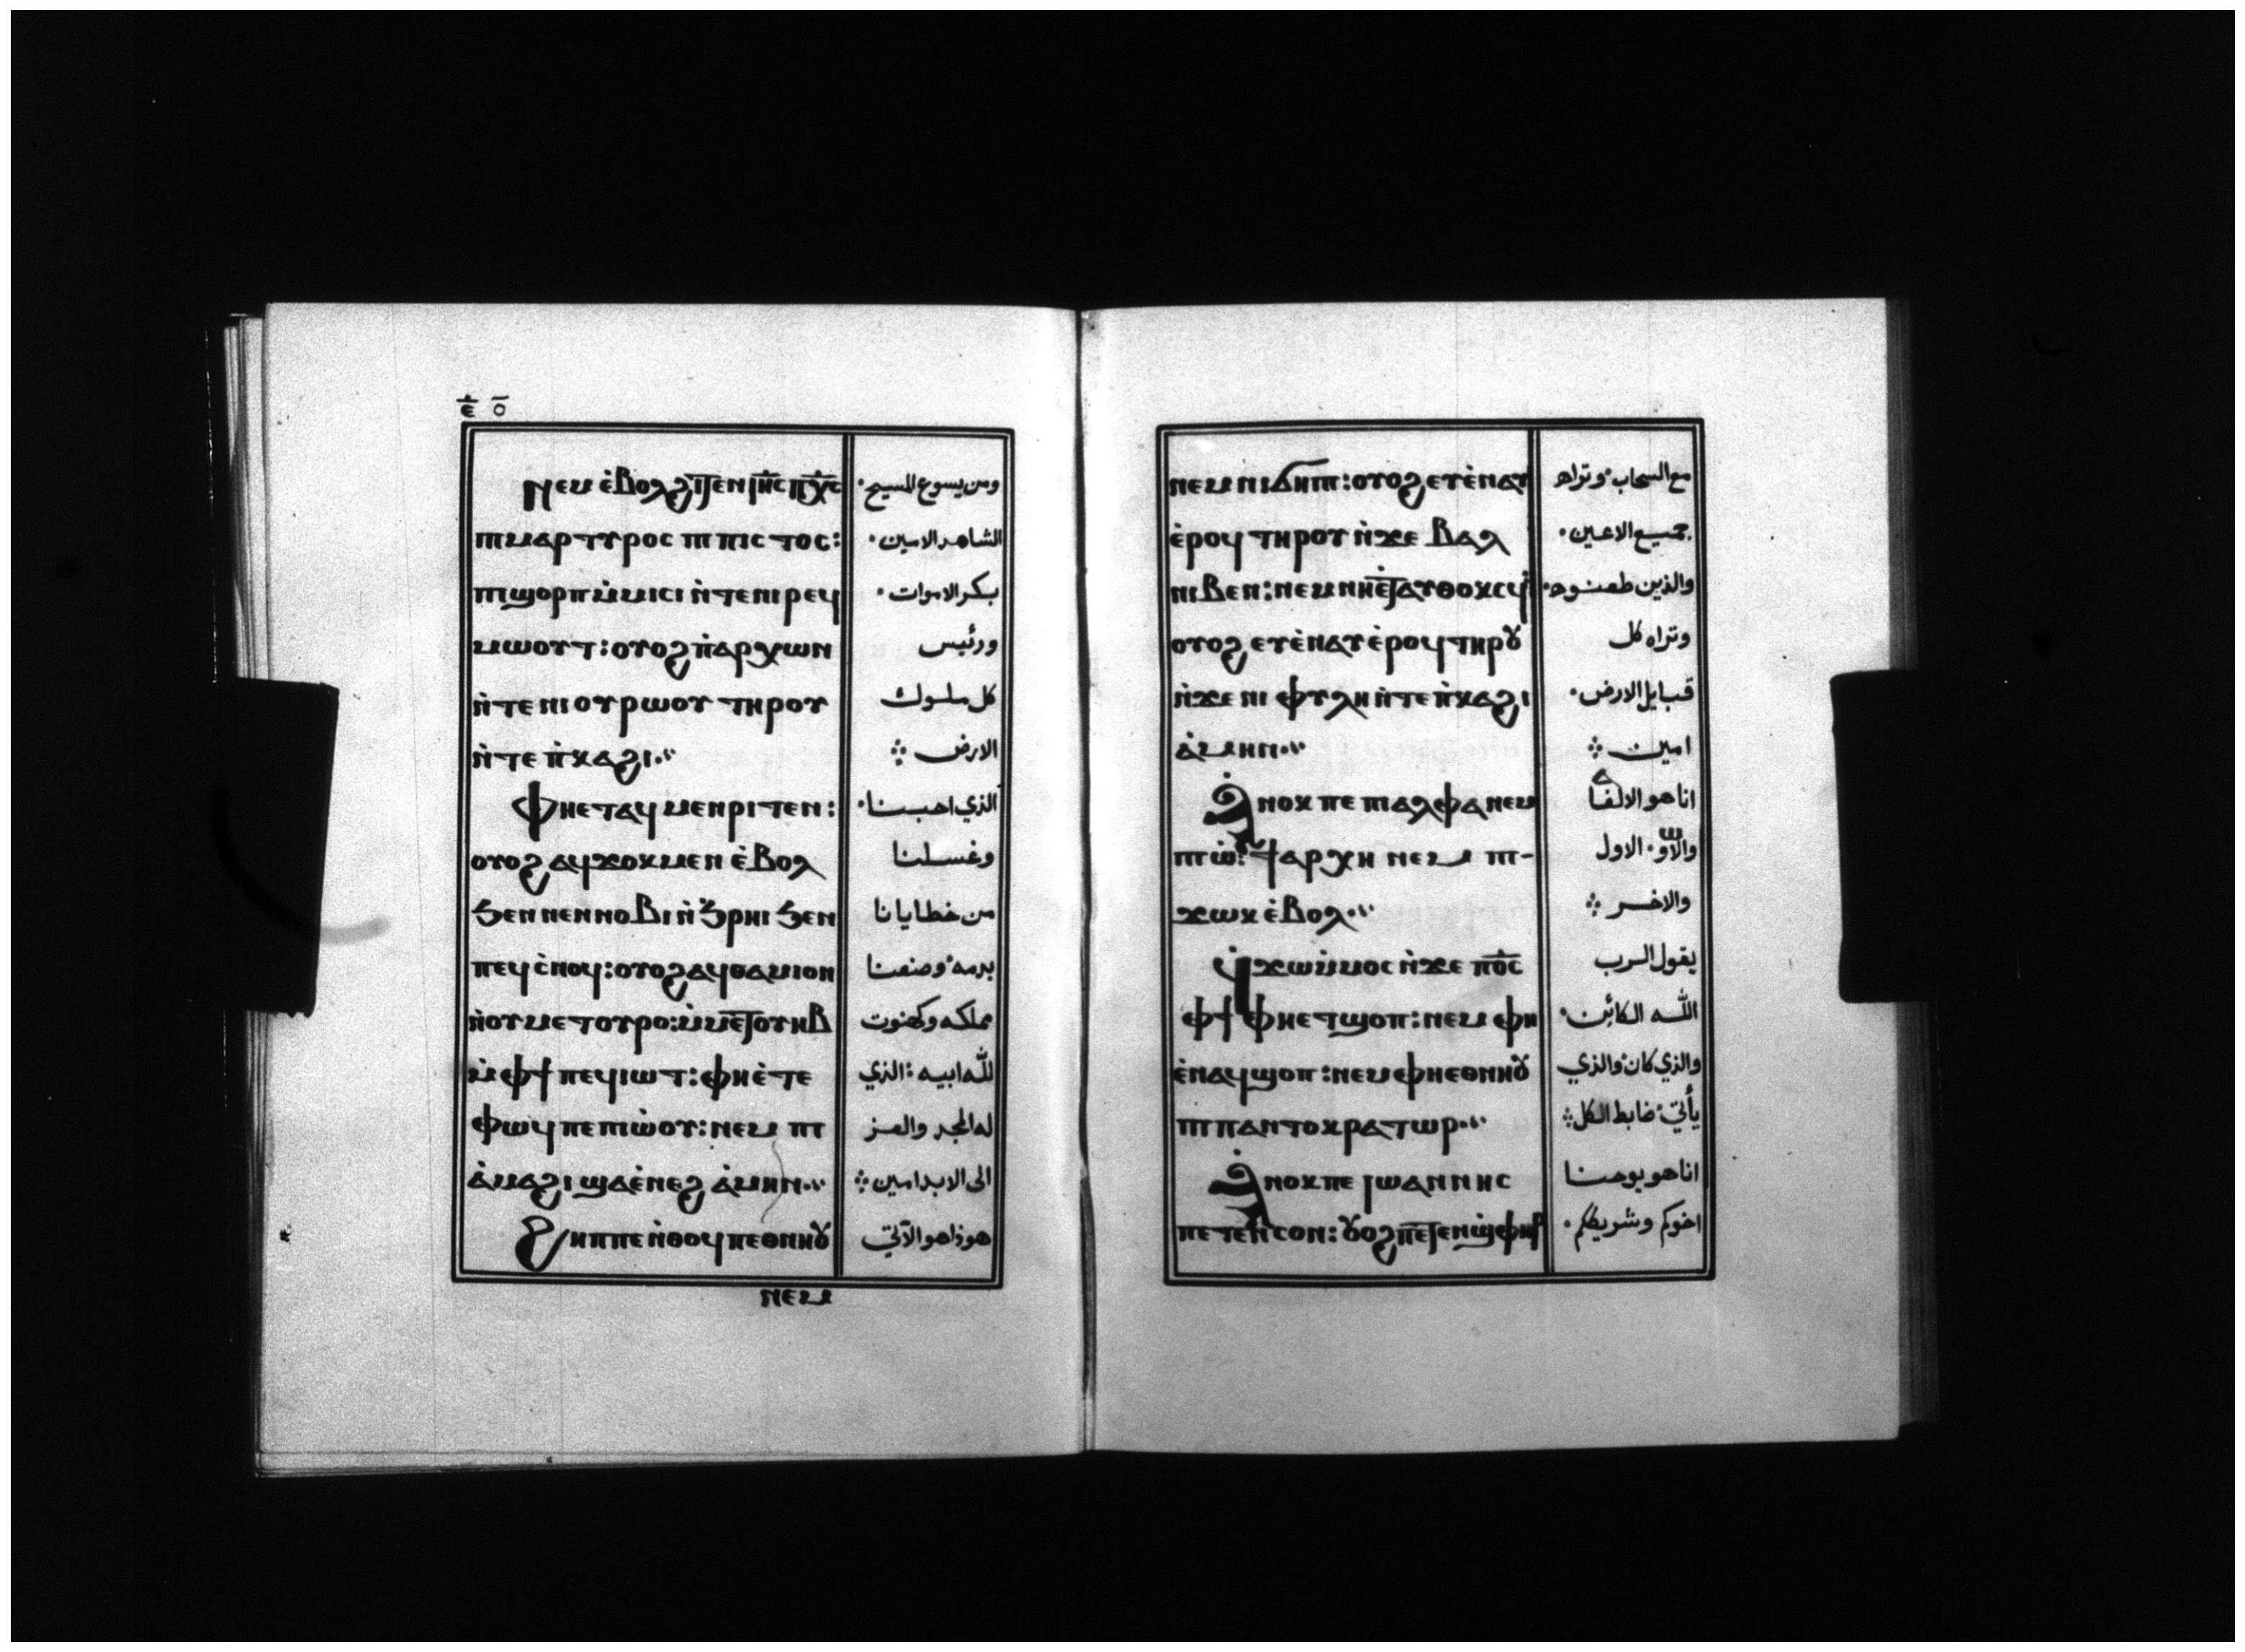 ⲉ̅ ⲟ̅
ⲛⲉⲙ ⲉ̀ⲃⲟⲗϩⲓⲧⲉⲛ ⲓⲏ̅ⲥ̅ ⲡⲭ̅ⲥ̅ ومن يسوع المسيح.
ⲡⲓⲙⲁⲣⲧⲩⲣⲟⲥ ⲡⲓⲡⲓⲥⲧⲟⲥ: الشاهد الامين.
ⲡⲓϣⲟⲣⲡⲙ̀ⲙⲓⲥⲓ ⲛ̀ⲧⲉⲛⲓⲣⲉϥ بكر الاموات.
ⲙⲱⲟⲩⲧ: ⲟⲩⲟϩ ⲡ̀ⲁⲣⲭⲱⲛ ورئيس
ⲛ̀ⲧⲉ ⲛⲓⲟⲩⲣⲱⲟⲩ ⲧⲏⲣⲟⲩ كل ملوك
ⲛ̀ⲧⲉ ⲡ̀ⲕⲁϩⲓ⁘ الارض ⁘
ⲫⲏⲉⲧⲁϥ ⲙⲉⲛⲣⲓⲧⲉⲛ: الذي احبنا.
ⲟⲩⲟϩ ⲁϥϫⲟⲕⲙⲉⲛ ⲉ̀ⲃⲟⲗ وغسلنا
ϧⲉⲛ ⲛⲉⲛⲛⲟⲃⲓ ⲛ̀ϧⲣⲏⲓ ϧⲉⲛ من خطايانا
ⲡⲉϥⲥ̀ⲛⲟϥ: ⲟⲩⲟϩ ⲁϥⲑⲁⲙⲓⲟⲛ بدمه. وصنعنا
ⲛ̀ⲟⲩⲙⲉⲧⲟⲩⲣⲟ: ⲙ̀ⲙⲉⲧⲟⲩⲏⲃ مملكه وكهنوت
ⲙ̀ⲫϯ ⲡⲉϥⲓⲱⲧ: ⲫⲏⲉ̀ⲧⲉ لله ابيه: الذي
ⲫⲱϥ ⲡⲉ ⲡⲓⲱ̀ⲟⲩ: ⲛⲉⲙ ⲡⲓ له المجد والعز
ⲁ̀ⲙⲁϩⲓ ϣⲁⲉ̀ⲛⲉϩ ⲁ̀ⲙⲏⲛ⁘ الى الابد امين ⁘
ϩⲏⲡⲡⲉ ⲛ̀ⲑⲟϥ ⲡⲉⲑⲛⲏⲟⲩ هوذا هو الآتي
ⲛⲉⲙ
ⲛⲉⲙ ⲛⲓϭⲏⲡⲓ: ⲟⲩⲟϩ ⲉⲩⲉ̀ⲛⲁⲩ مع السحاب. وتراه
ⲉ̀ⲣⲟϥ ⲧⲏⲣⲟⲩ ⲛ̀ϫⲉ ⲃⲁⲗ جميع الاعين.
ⲛⲓⲃⲉⲛ: ⲛⲉⲙ ⲛⲏⲉⲧⲁⲩⲑⲟⲕⲥϥ والذين طعنوه.
ⲟⲩⲟϩ ⲉⲩⲉ̀ⲛⲁⲩ ⲉ̀ⲣⲟϥ ⲧⲏⲣⲟⲩ وتراه كل
ⲛ̀ϫⲉ ⲛⲓ ⲫⲩⲗⲏ ⲛ̀ⲧⲉ ⲡ̀ⲕⲁϩⲓ قبايل الارض.
ⲁ̀ⲙⲏⲛ⁘ امين ⁘
ⲁ̀ⲛⲟⲕ ⲡⲉ ⲡⲓⲁⲗⲫⲁ ⲛⲉⲙ انا هو الالفا
ⲡⲓⲱ̀: ϯⲁⲣⲭⲏ ⲛⲉⲙ ⲡⲓ- والاو. الاول
ϫⲱⲕ ⲉ̀ⲃⲟⲗ⁘ والاخر ⁘
ϥϫⲱⲙ̀ⲙⲟⲥ ⲛ̀ϫⲉ ⲡⲟ̅ⲥ̅ يقول الرب
ⲫϯ ⲫⲏⲉⲧϣⲟⲡ: ⲛⲉⲙ ⲫⲏ الله الكائن.
ⲉ̀ⲛⲁϥϣⲟⲡ: ⲛⲉⲙ ⲫⲏⲉⲑⲛⲏⲟⲩ والذي كان. والذي
ⲡⲓⲡⲁⲛⲧⲟⲕⲣⲁⲧⲱⲣ⁘ يأتي. ضابط الكل ⁘
ⲁ̀ⲛⲟⲕ ⲡⲉ ⲓⲱⲁⲛⲛⲏⲥ انا هو يوحنا
ⲡⲉⲧⲉⲛⲥⲟⲛ: ⲟⲩⲟϩ ⲡⲉⲧⲉⲛϣ̀ⲫⲏⲣ اخوكم وشريككم.